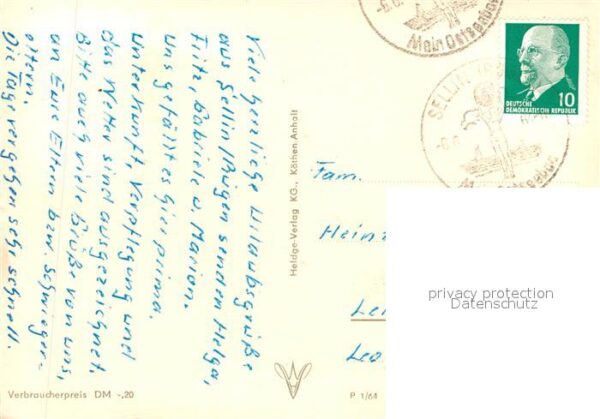 Viele herzliche Urlaubsgrüße
aus Sellin/Rügen senden Helga,
Fritz, Gabriele u. Marion.
Uns gefällt es hier prima.
Unterkunft, Verpflegung und
das Wetter sind ausgezeichnet.
Bitte auch viele Grüße von uns,
an Eure Eltern bzw. Schwieger-
eltern.
Die Tag vergehen sehr schnell.
Verbraucherpreis DM -,20
Heldge-Verlag KG., Köthen-Anhalt
P 1/64
Mein Ostseebad
SELLIN
Mein Ostseebad
DEUTSCHE
DEMOKRATISCHE REPUBLIK
10
Fam.
Heinz
privacy protection
Datenschutz